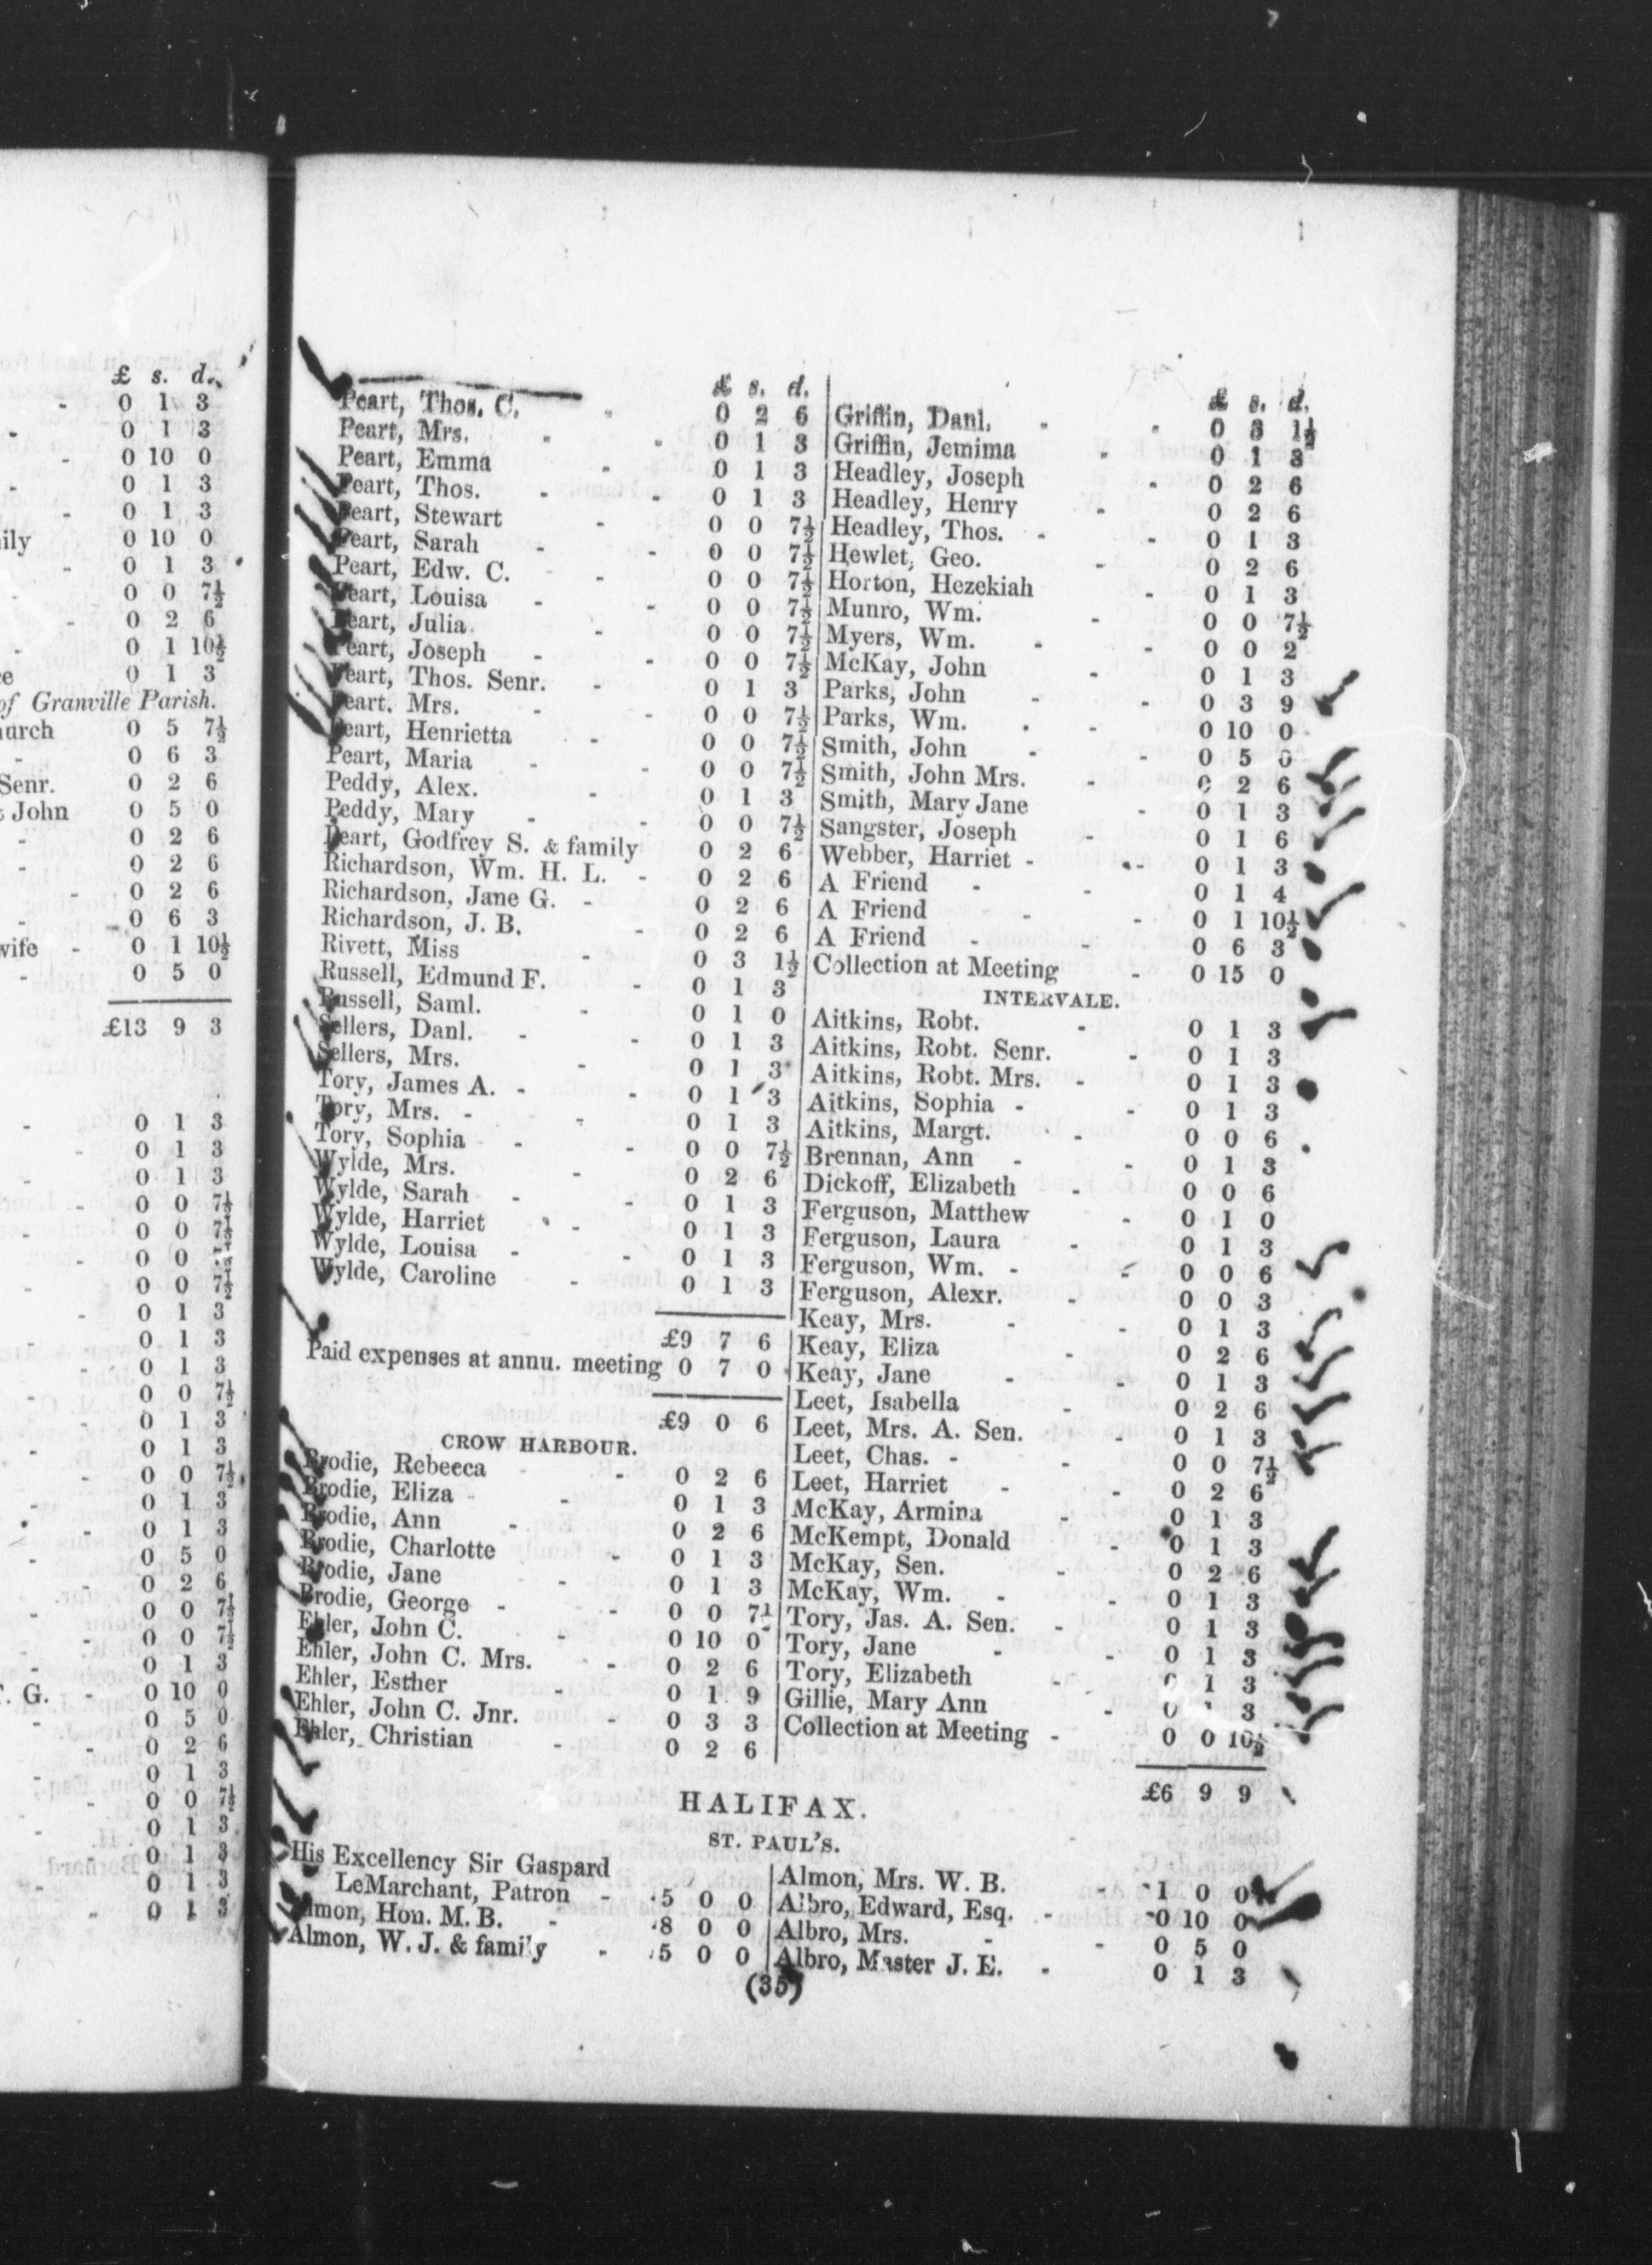 £ s. d.
- 0 1 3
- 0 1 3
- 0 10 0
- 0 1 3
- 0 1 3
ily 0 10 0
- 0 1 3
- 0 0 7½
- 0 2 6
- 0 1 10½
e 0 1 3
of Granville Parish.
urch 0 5 7½
- 0 6 3
Senr. 0 2 6
John 0 5 0
- 0 2 6
- 0 2 6
- 0 2 6
- 0 6 3
wife - 0 1 10½
- 0 5 0
£13 9 3
- 0 1 3
- 0 1 3
- 0 1 3
- 0 0 7½
- 0 0 7½
- 0 0
- 0 0 7½
- 0 1 3
- 0 1 3
- 0 1 3
- 0 0 7½
- 0 1 3
- 0 1 3
- 0 0 7½
- 0 1 3
- 0 1 3
- 0 5 0
- 0 2 6
- 0 0 7½
- 0 0 7½
- 0 1 3
. G. - 0 10 0
- 0 5 0
- 0 2 6
- 0 1 3
- 0 0 7½
- 0 1 3
0 1 3
- 0 1 3
- 0 1 3
£ s. d.
Peart, Thos. C. - 0 2 6
Peart, Mrs. - - 0 1 3
Peart, Emma - 0 1 3
Peart, Thos. - - 0 1 3
Peart, Stewart - 0 0 7½
Peart, Sarah - - 0 0 7½
Peart, Edw. C. - 0 0 7½
Peart, Louisa - - 0 0 7½
Peart, Julia - 0 0 7½
Peart, Joseph - - 0 0 7½
Peart, Thos. Senr. - 0 1 3
Peart, Mrs. - - 0 0 7½
Peart, Henrietta - 0 0 7½
Peart, Maria - - 0 0 7½
Peddy, Alex. - 0 1 3
Peddy, Mary - - 0 0 7½
Peart, Godfrey S. & family 0 2 6
Richardson, Wm. H. L. - 0 2 6
Richardson, Jane G. - 0 2 6
Richardson, J. B. - 0 2 6
Rivett, Miss - 0 3 1½
Russell, Edmund F. - 0 1 3
Russell, Saml. - 0 1 0
Sellers, Danl. - - 0 1 3
Sellers, Mrs. - 0 1 3
Tory, James A. - - 0 1 3
Tory, Mrs. - - 0 1 3
Tory, Sophia - - 0 0 7½
Wylde, Mrs. - 0 2 6
Wylde, Sarah - - 0 1 3
Wylde, Harriet - 0 1 3
Wylde, Louisa - - 0 1 3
Wylde, Caroline - 0 1 3
£9 7 6
Paid expenses at annu. meeting 0 7 0
£9 0 6
CROW HARBOUR.
Brodie, Rebecca - 0 2 6
Brodie, Eliza - 0 1 3
Brodie, Ann - 0 2 6
Brodie, Charlotte - 0 1 3
Brodie, Jane - 0 1 3
Brodie, George - - 0 0 7½
Ehler, John C. - 0 10 0
Ehler, John C. Mrs. - 0 2 6
Ehler, Esther - 0 1 9
Ehler, John C. Jnr. - 0 3 3
Ehler, Christian - 0 2 6
£ s. d.
Griffin, Danl. - - 0 3 1½
Griffin, Jemima - 0 1 3
Headley, Joseph - 0 2 6
Headley, Henry - 0 2 6
Headley, Thos. - - 0 1 3
Hewlet, Geo. - 0 2 6
Horton, Hezekiah - 0 1 3
Munro, Wm. - 0 0 7½
Myers, Wm. - - 0 0 2
McKay, John - 0 1 3
Parks, John - - 0 3 9
Parks, Wm. - - 0 10 0
Smith, John - 0 5 0
Smith, John Mrs. - 0 2 6
Smith, Mary Jane - 0 1 3
Sangster, Joseph - 0 1 6
Webber, Harriet - - 0 1 3
A Friend - - 0 1 4
A Friend - - 0 1 10½
A Friend - - 0 6 3
Collection at Meeting - 0 15 0
INTERVALE.
Aitkins, Robt. - 0 1 3
Aitkins, Robt. Senr. - 0 1 3
Aitkins, Robt. Mrs. - 0 1 3
Aitkins, Sophia - - 0 1 3
Aitkins, Margt. - 0 0 6
Brennan, Ann - - 0 1 3
Dickoff, Elizabeth - 0 0 6
Ferguson, Matthew - 0 1 0
Ferguson, Laura - 0 1 3
Ferguson, Wm. - - 0 0 6
Ferguson, Alexr. - 0 0 3
Keay, Mrs. - - 0 1 3
Keay, Eliza - 0 2 6
Keay, Jane - - 0 1 3
Leet, Isabella - 0 2 6
Leet, Mrs. A. Sen. - 0 1 3
Leet, Chas. - - 0 0 7½
Leet, Harriet - - 0 2 6
McKay, Armina - 0 1 3
McKempt, Donald - 0 1 3
McKay, Sen. - 0 2 6
McKay, Wm. - - 0 1 3
Tory, Jas. A. Sen. - 0 1 3
Tory, Jane - - 0 1 3
Tory, Elizabeth - 0 1 3
Gillie, Mary Ann - 0 1 3
Collection at Meeting - 0 0 10½
£6 9 9
HALIFAX.
ST. PAUL'S.
His Excellency Sir Gaspard
LeMarchant, Patron - 5 0 0
Almon, Hon. M. B. - 8 0 0
Almon, W. J. & family - 5 0 0
Almon, Mrs. W. B. - 1 0 0
Albro, Edward, Esq. - 0 10 0
Albro, Mrs. - - 0 5 0
Albro, Master J. E. - 0 1 3
(35)